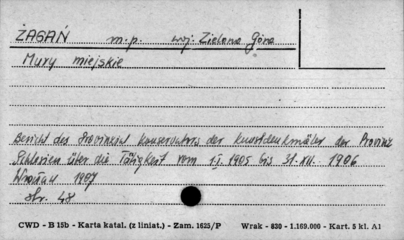 ŻAGAŃ m.p. woj. Zielona Góra
Mury miejskie
Bericht des Provinzial Konservators der Kunstdenkmäler der Provinz
Schlesien über die Tätigkeit vom 1.I. 1905 bis 31.XII. 1906
Wrocław 1907
Str. 48
CWD - B 15b - Karta katal. (z liniat.) - Zam. 1625/P Wrak - 830 - 1.169.000 - Kart. 5 kl. A1